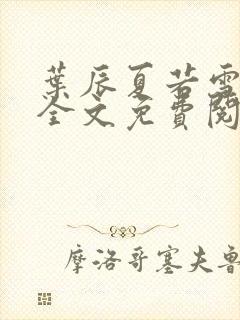 葉辰夏若雪
全文免費閱
摩洛哥塞夫魯